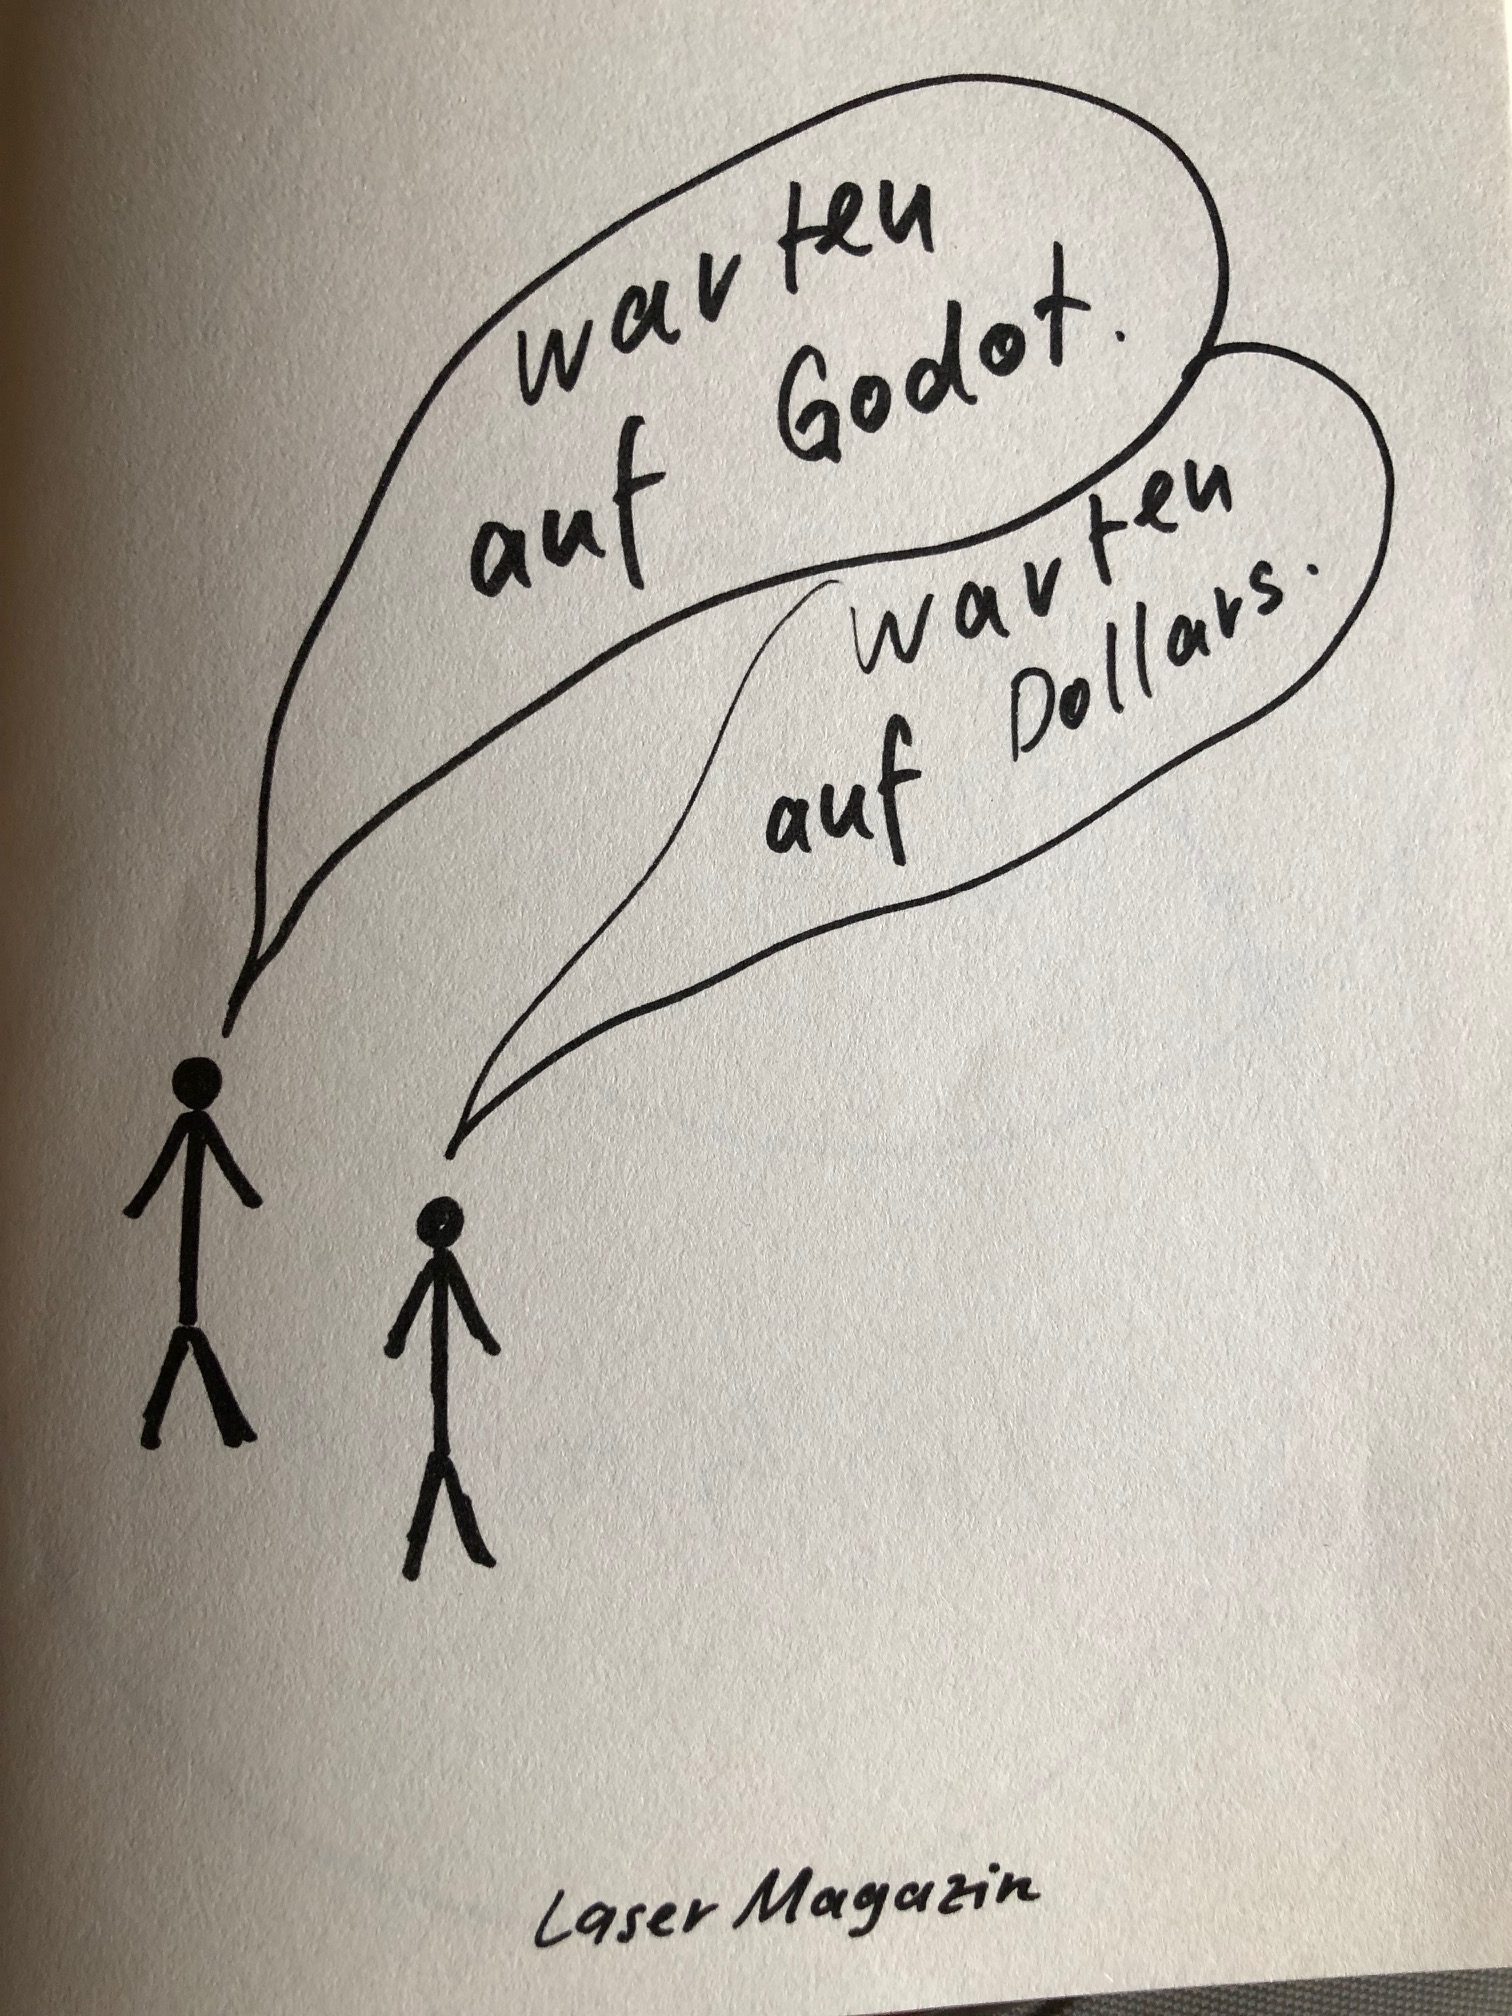 warten
auf Godot.
warten
auf Dollars.
Laser Magazin